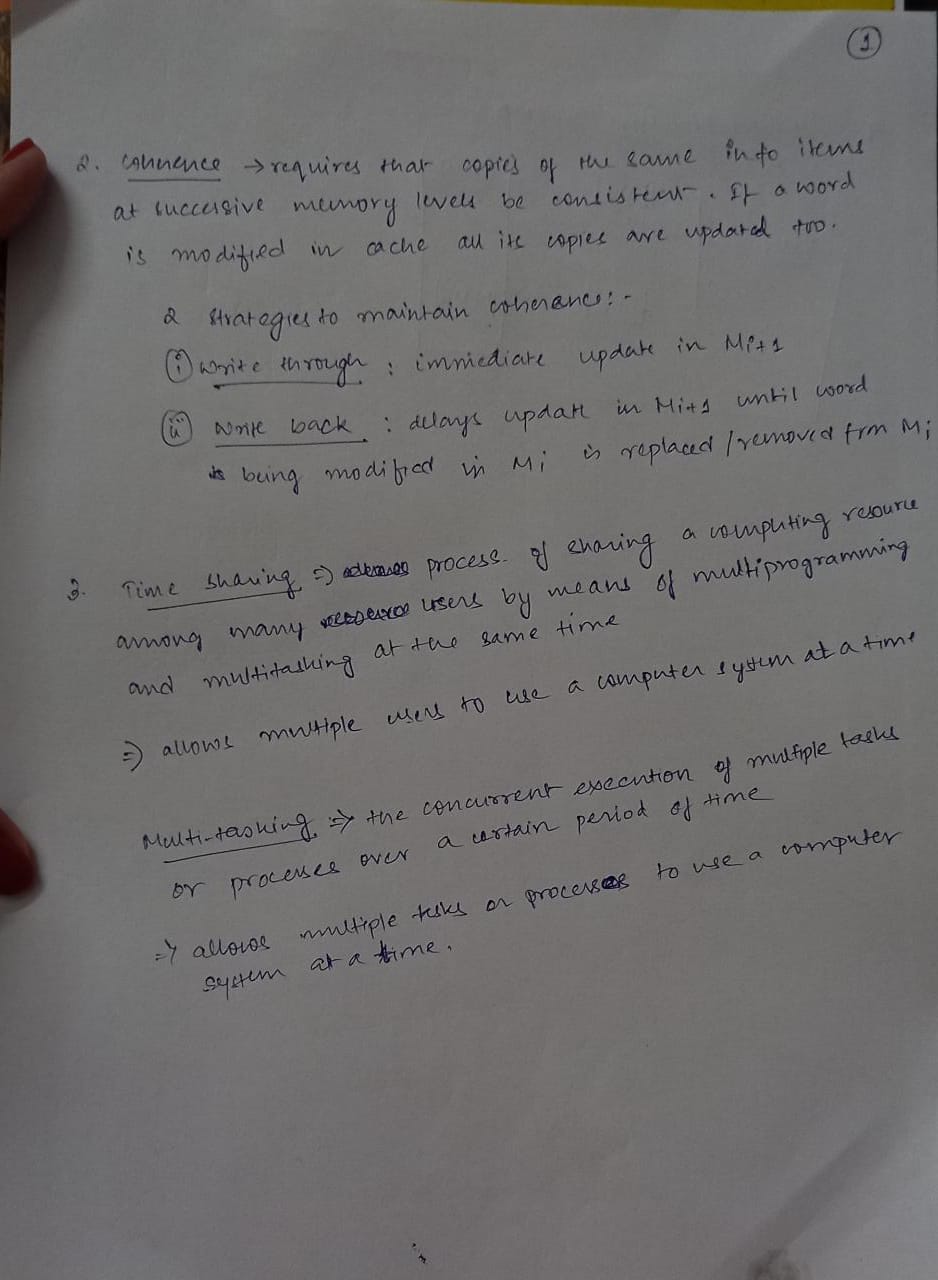 1
2. Coherence → requires that copies of the same info items
at successive memory levels be consistent. If a word
is modified in cache all its copies are updated too.
2 strategies to maintain coherance:-
(i) write through : immediate update in Mi+1
(ii) write back : delays update in Mi+1 until word
being modified in Mi is replaced/removed frm Mi
3. Time sharing ⇒ process of sharing a computing resource
among many users by means of multiprogramming
and multitasking at the same time
⇒ allows multiple users to use a computer system at a time
Multi-tasking ⇒ the concurrent execution of multiple tasks
or processes over a certain period of time
⇒ allows multiple tasks or processes to use a computer
system at a time.